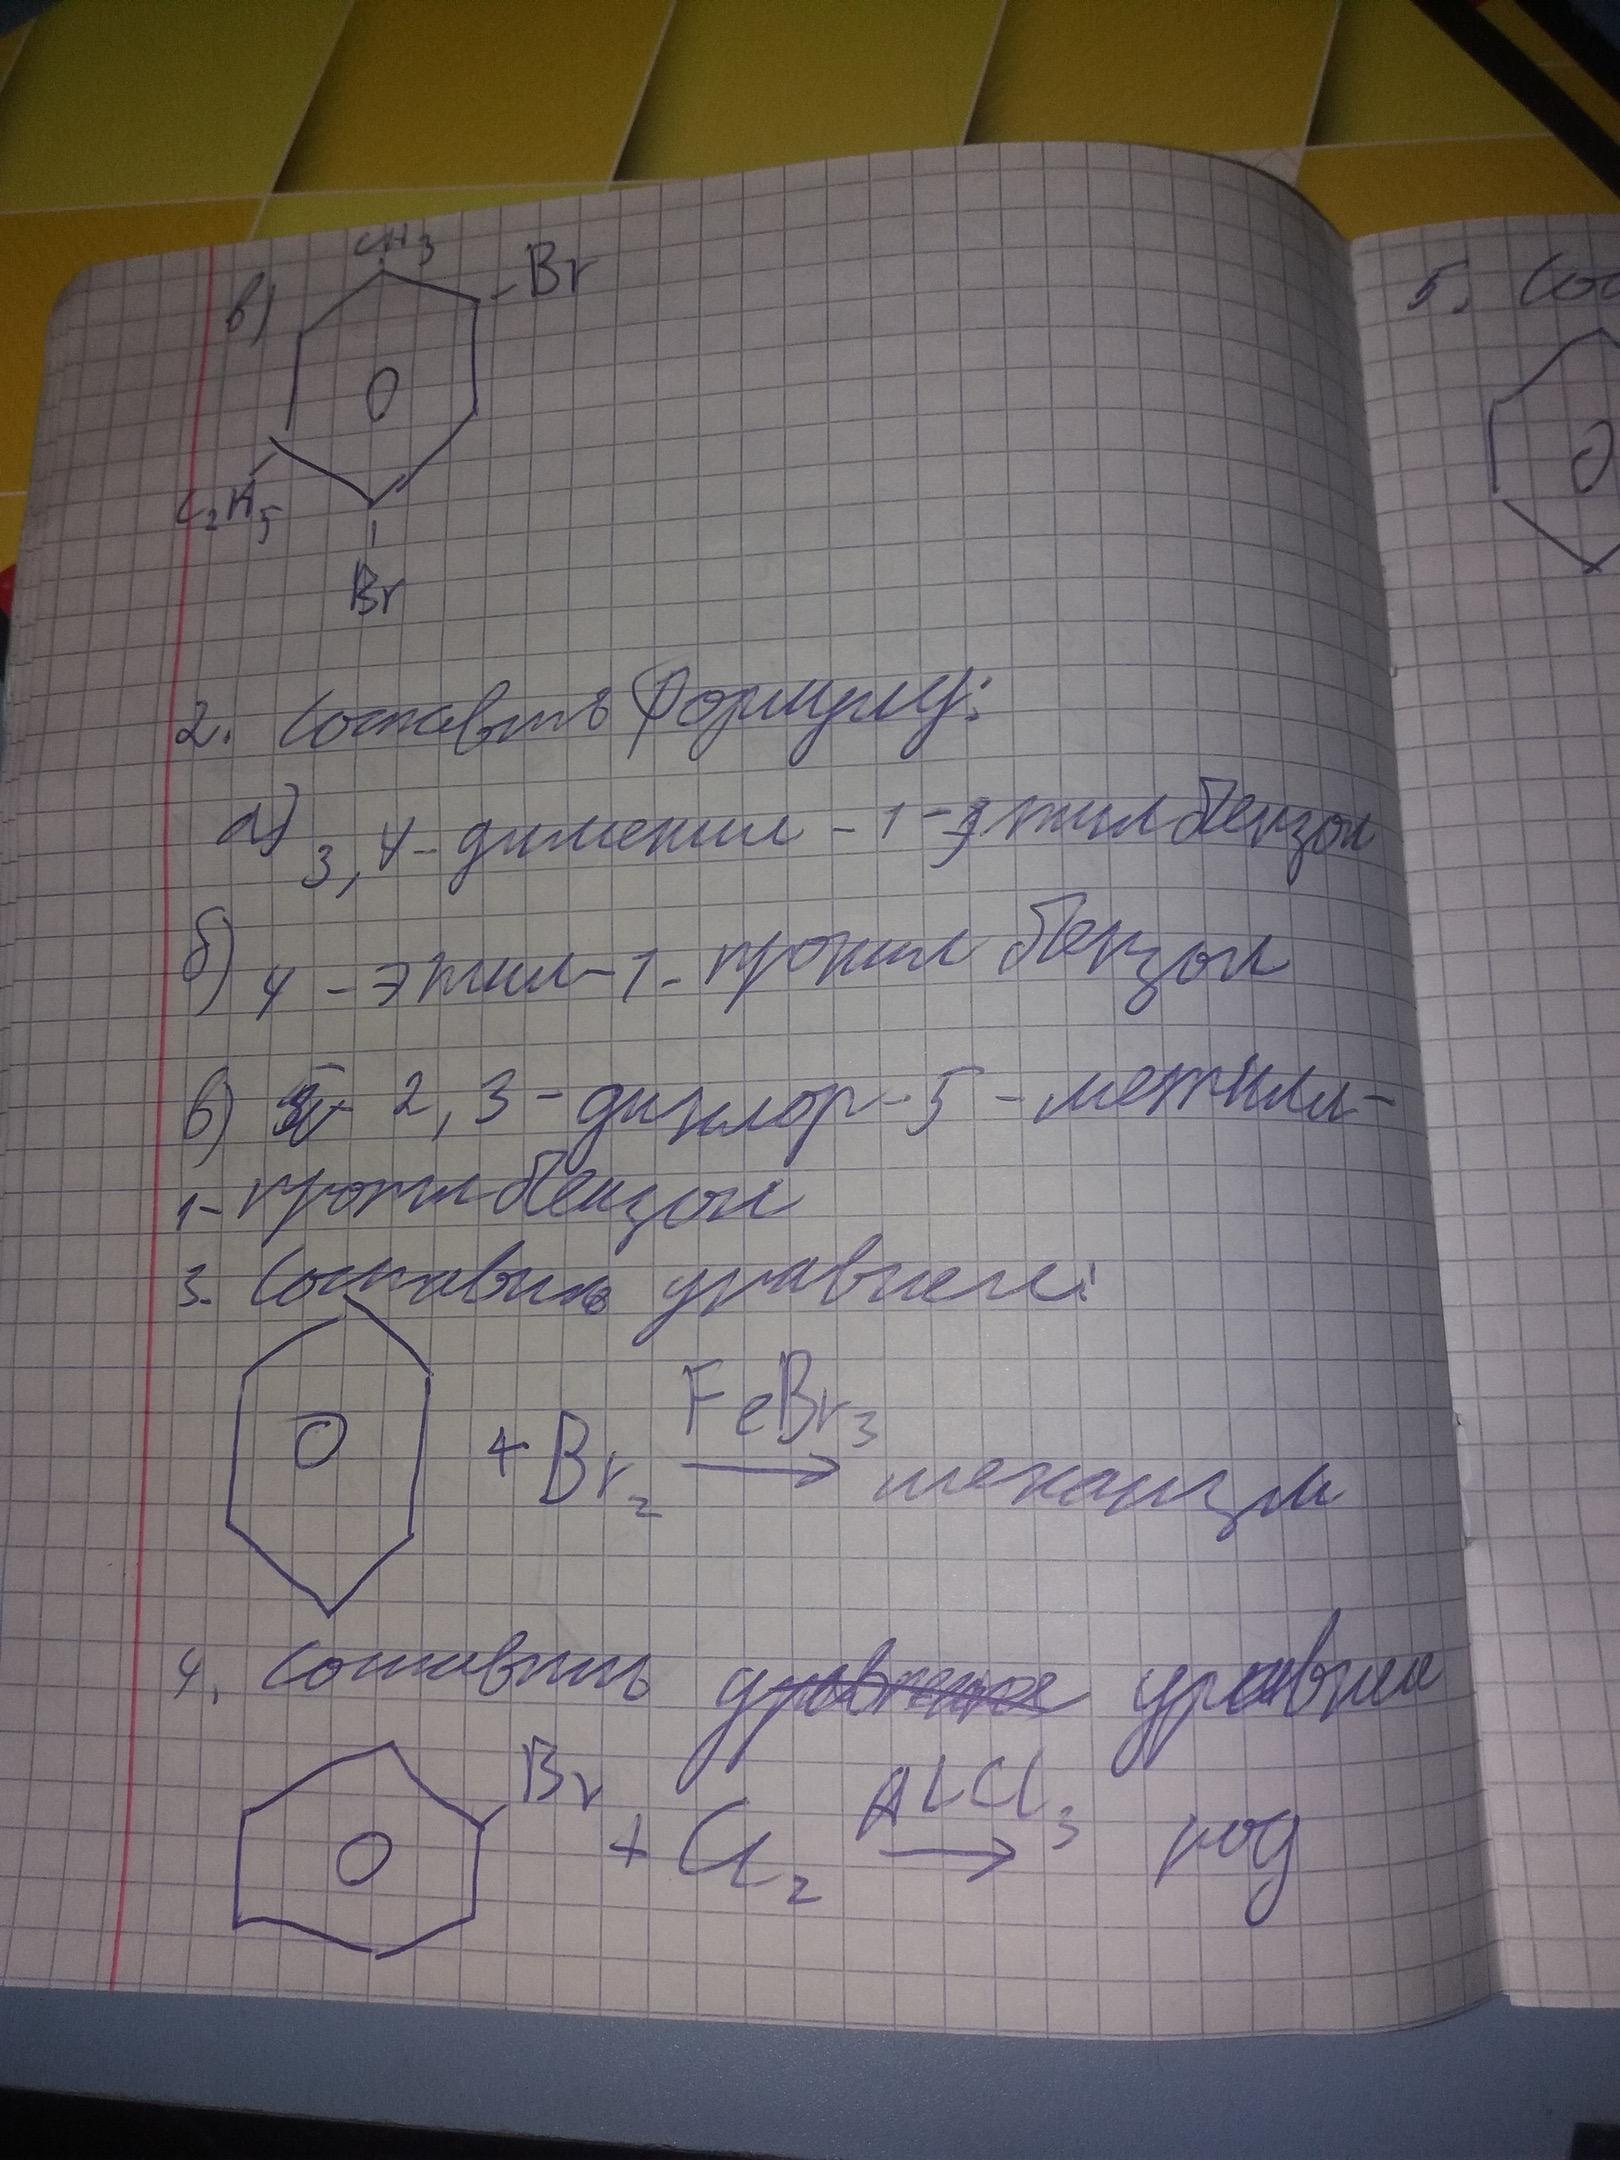 в)
CH3
Br
C2H5
Br
2. Составить формулу:
а) 3,4-диметил-1-этилбензол
б) 4-этил-1-пропил бензол
в) 2,3-дихлор-5-метил-
1-пропилбензол
3. Составить уравнен:
+ Br2 FeBr3 → механизм
4. Составить уравнен
Br + Cl2 AlCl3 →
5. Сос